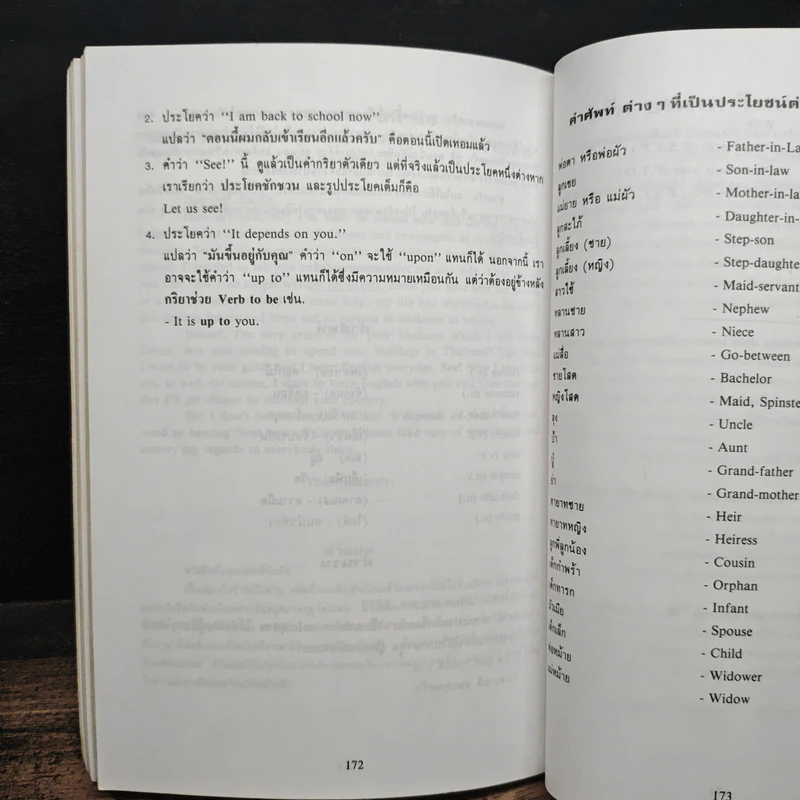 2. ประโยคว่า "I am back to school now"
แปลว่า "ตอนนี้ผมกลับเข้าเรียนอีกแล้วครับ" คือตอนนี้เปิดเทอมแล้ว
3. คำว่า "See!" นี้ ดูแล้วเป็นคำกริยาตัวเดียว แต่ที่จริงแล้วเป็นประโยคหนึ่งต่างหาก
เราเรียกว่า ประโยชักชวน และรูปประโยคเต็มก็คือ
Let us see!
4. ประโยคว่า "It depends on you."
แปลว่า "มันขึ้นอยู่กับคุณ" คำว่า "on" จะใช้ "upon" แทนก็ได้ นอกจากนี้ เรา
อาจจะใช้คำว่า "up to" แทนก็ได้ซึ่งมีความหมายเหมือนกัน แต่ว่าต้องอยู่ข้างหลัง
กริยาช่วย Verb to be เช่น.
- It is up to you.
172
คำศัพท์ ต่าง ๆ ที่เป็นประโยชน์ต่
พ่อตา หรือพ่อผัว - Father-in-La
ลูกเขย - Son-in-law
แม่ยาย หรือ แม่ผัว - Mother-in-la
ลูกสะใภ้ - Daughter-in-
ลูกเลี้ยง (ชาย) - Step-son
ลูกเลี้ยง (หญิง) - Step-daughte
สาวใช้ - Maid-servant
หลานชาย - Nephew
หลานสาว - Niece
แม่สื่อ - Go-between
ชายโสด - Bachelor
หญิงโสด - Maid, Spinste
ลุง - Uncle
ป้า - Aunt
ปู่ - Grand-father
ย่า - Grand-mother
ทายาทชาย - Heir
ทายาทหญิง - Heiress
ลูกพี่ลูกน้อง - Cousin
เด็กกำพร้า - Orphan
เด็กทารก - Infant
ผัวเมีย - Spouse
เด็กเล็ก - Child
พ่อหม้าย - Widower
แม่หม้าย - Widow
173